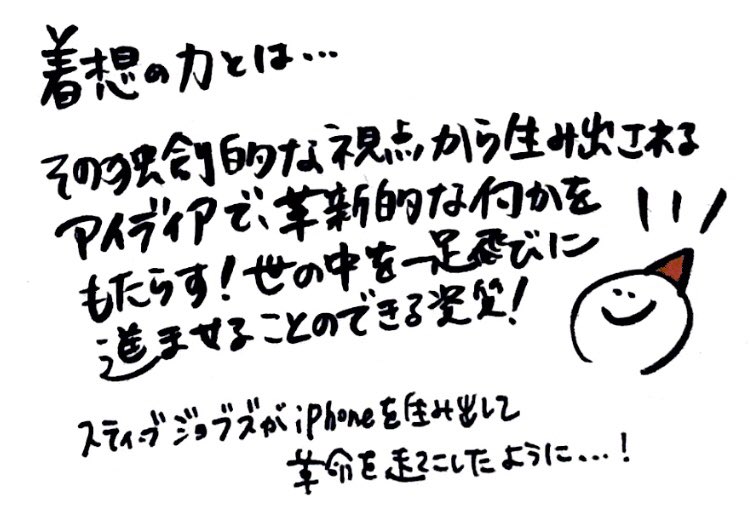 着想の力とは…
その独創的な視点から生み出される
アイディアで、革新的な何かを
もたらす！世の中を一足飛びに
進ませることのできる資質！
スティーブジョブズがiPhoneを生み出して
革命を起こしたように…！